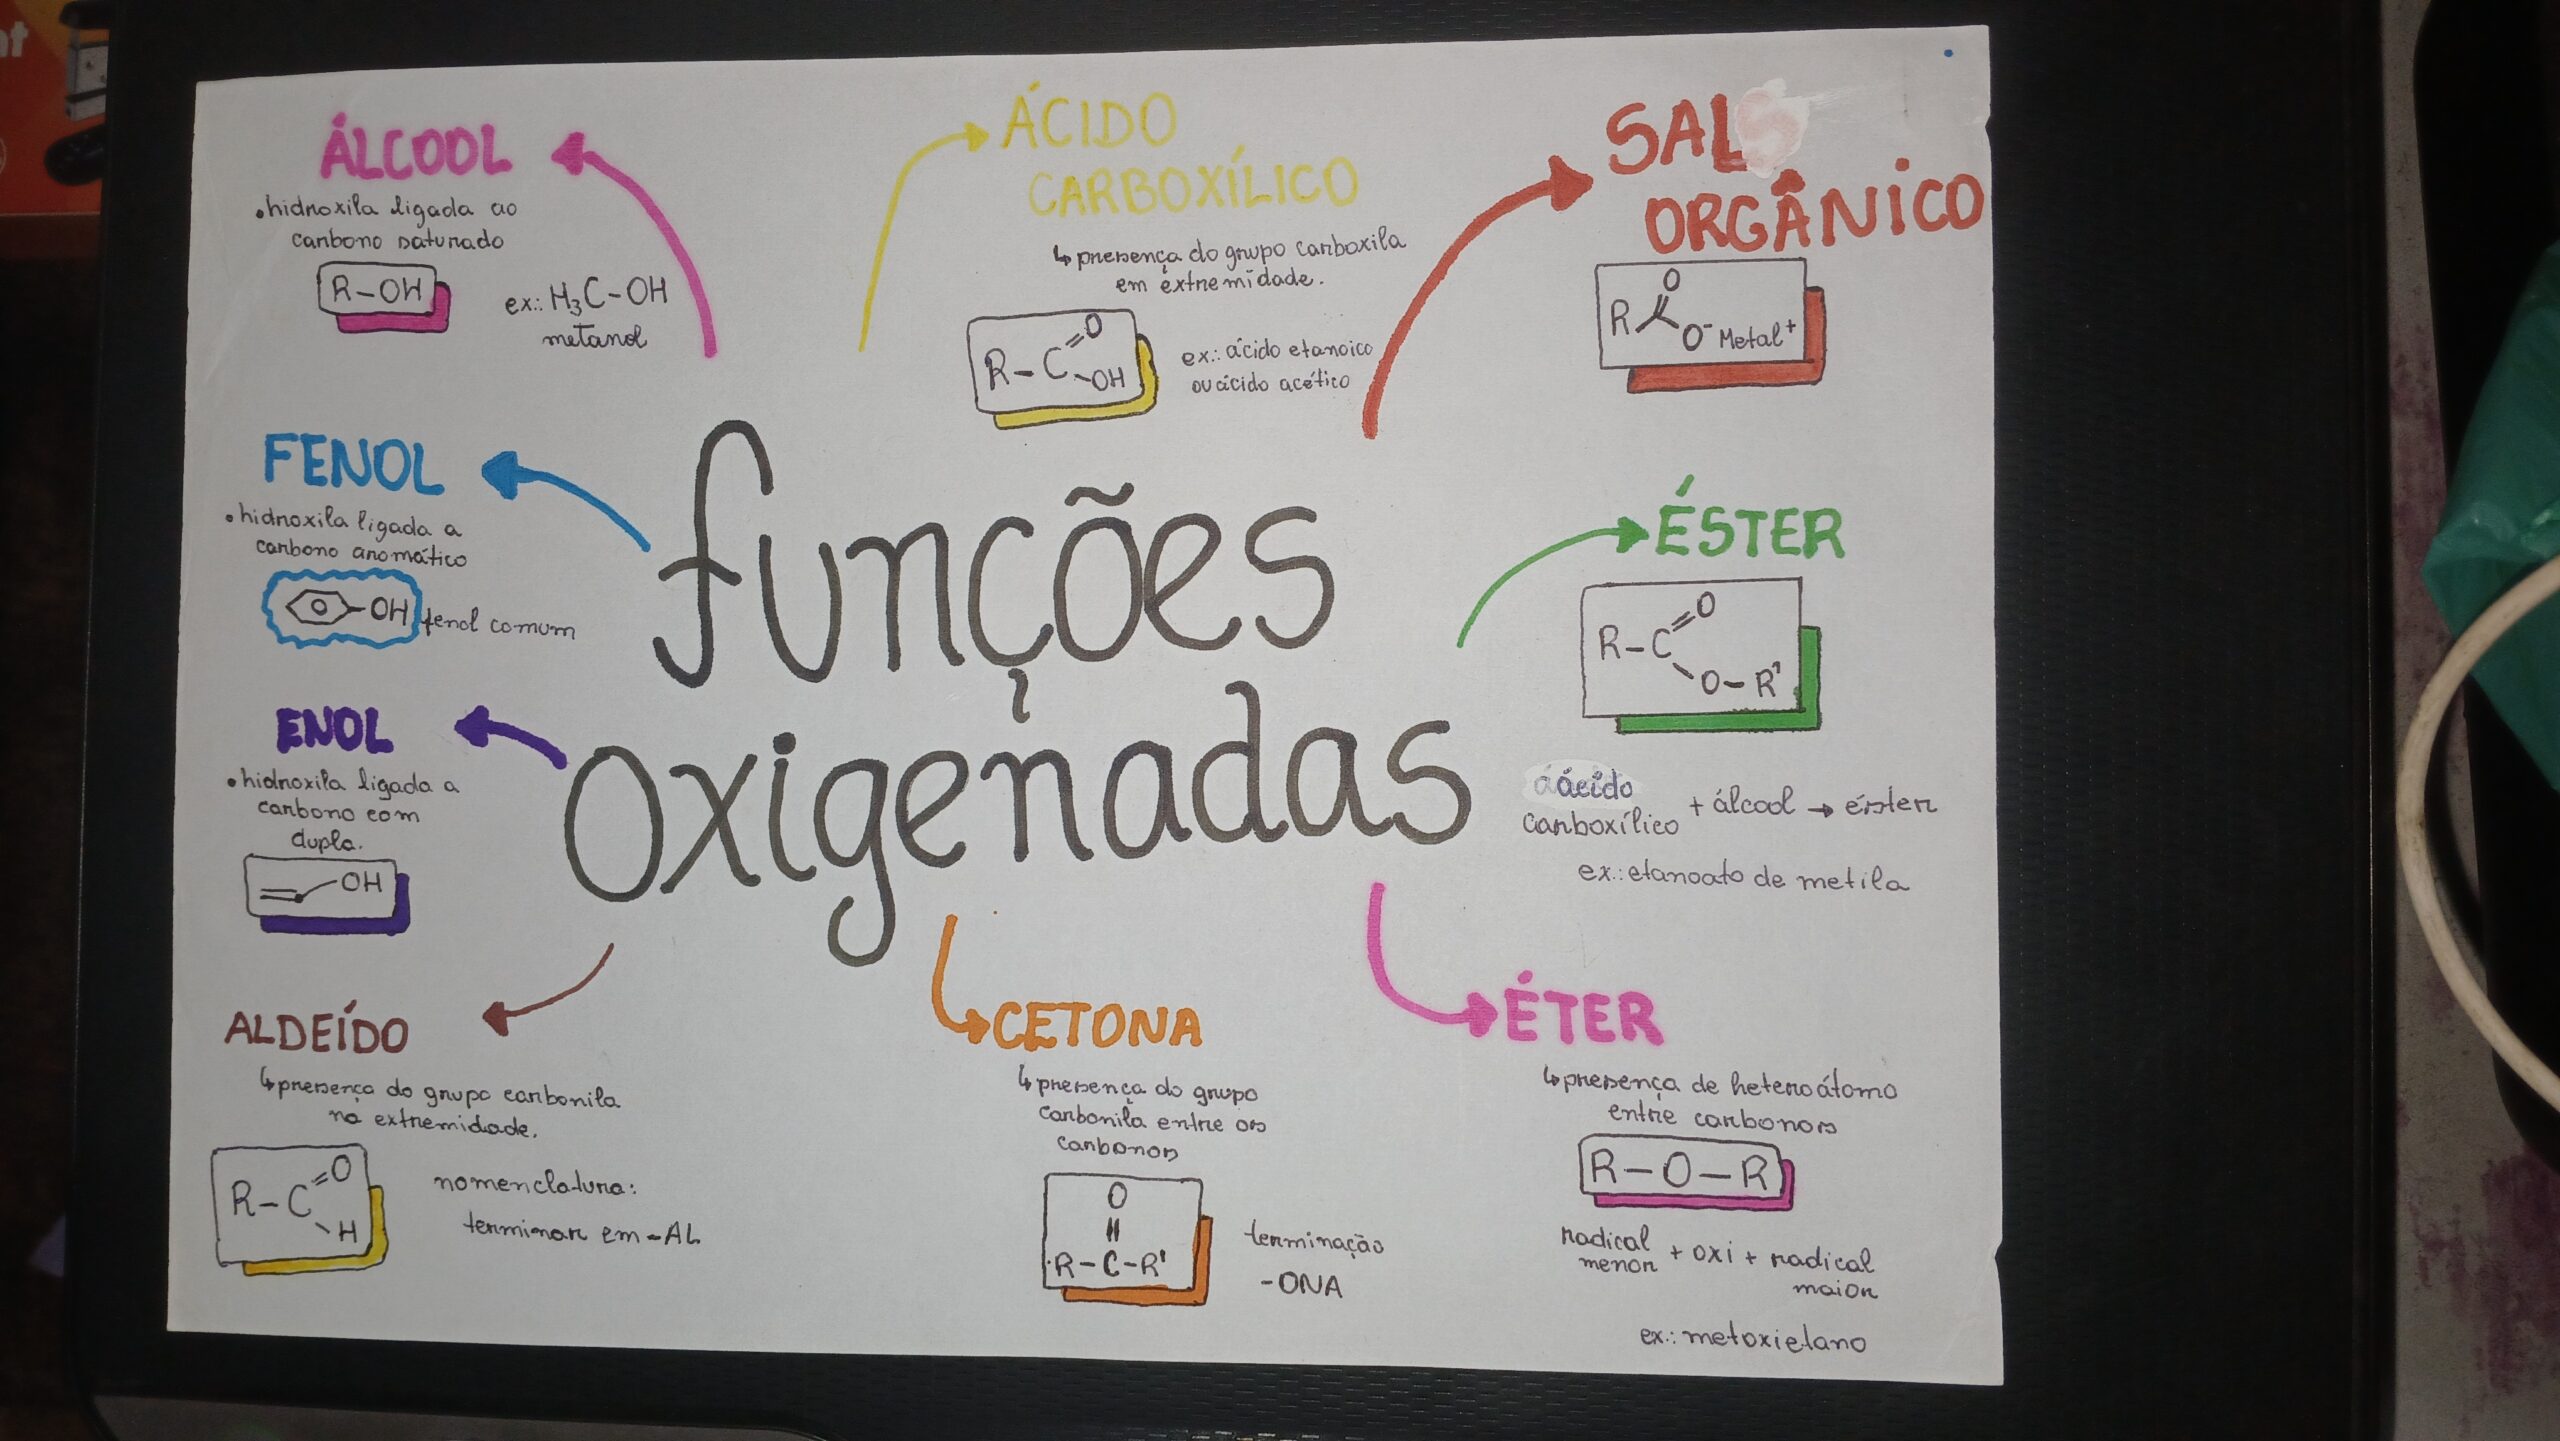 ÁLCOOL
•hidroxila ligada ao
carbono saturado
R-OH
ex.: H₃C-OH
metanol
FENOL
•hidroxila ligada a
carbono aromático
OH
fenol comum
ENOL
•hidroxila ligada a
carbono com
dupla.
OH
ALDEÍDO
↳presença do grupo carbonila
na extremidade.
R-C=O
H
nomenclatura:
terminar em -AL
funções
oxigenadas
ÁCIDO
CARBOXÍLICO
↳presença do grupo carboxila
em extremidade.
R-C=O
-OH
ex.: ácido etanoico
ou ácido acético
CETONA
↳presença do grupo
carbonila entre os
carbonos
O
R-C-R'
terminação
-ONA
SAL
ORGÂNICO
O
R
O⁻ Metal⁺
ÉSTER
R-C=O
O-R'
ácido
carboxílico + álcool → éster
ex.: etanoato de metila
ÉTER
↳presença de heteroátomo
entre carbonos
R-O-R
radical
menor + oxi + radical
maior
ex.: metoxietano